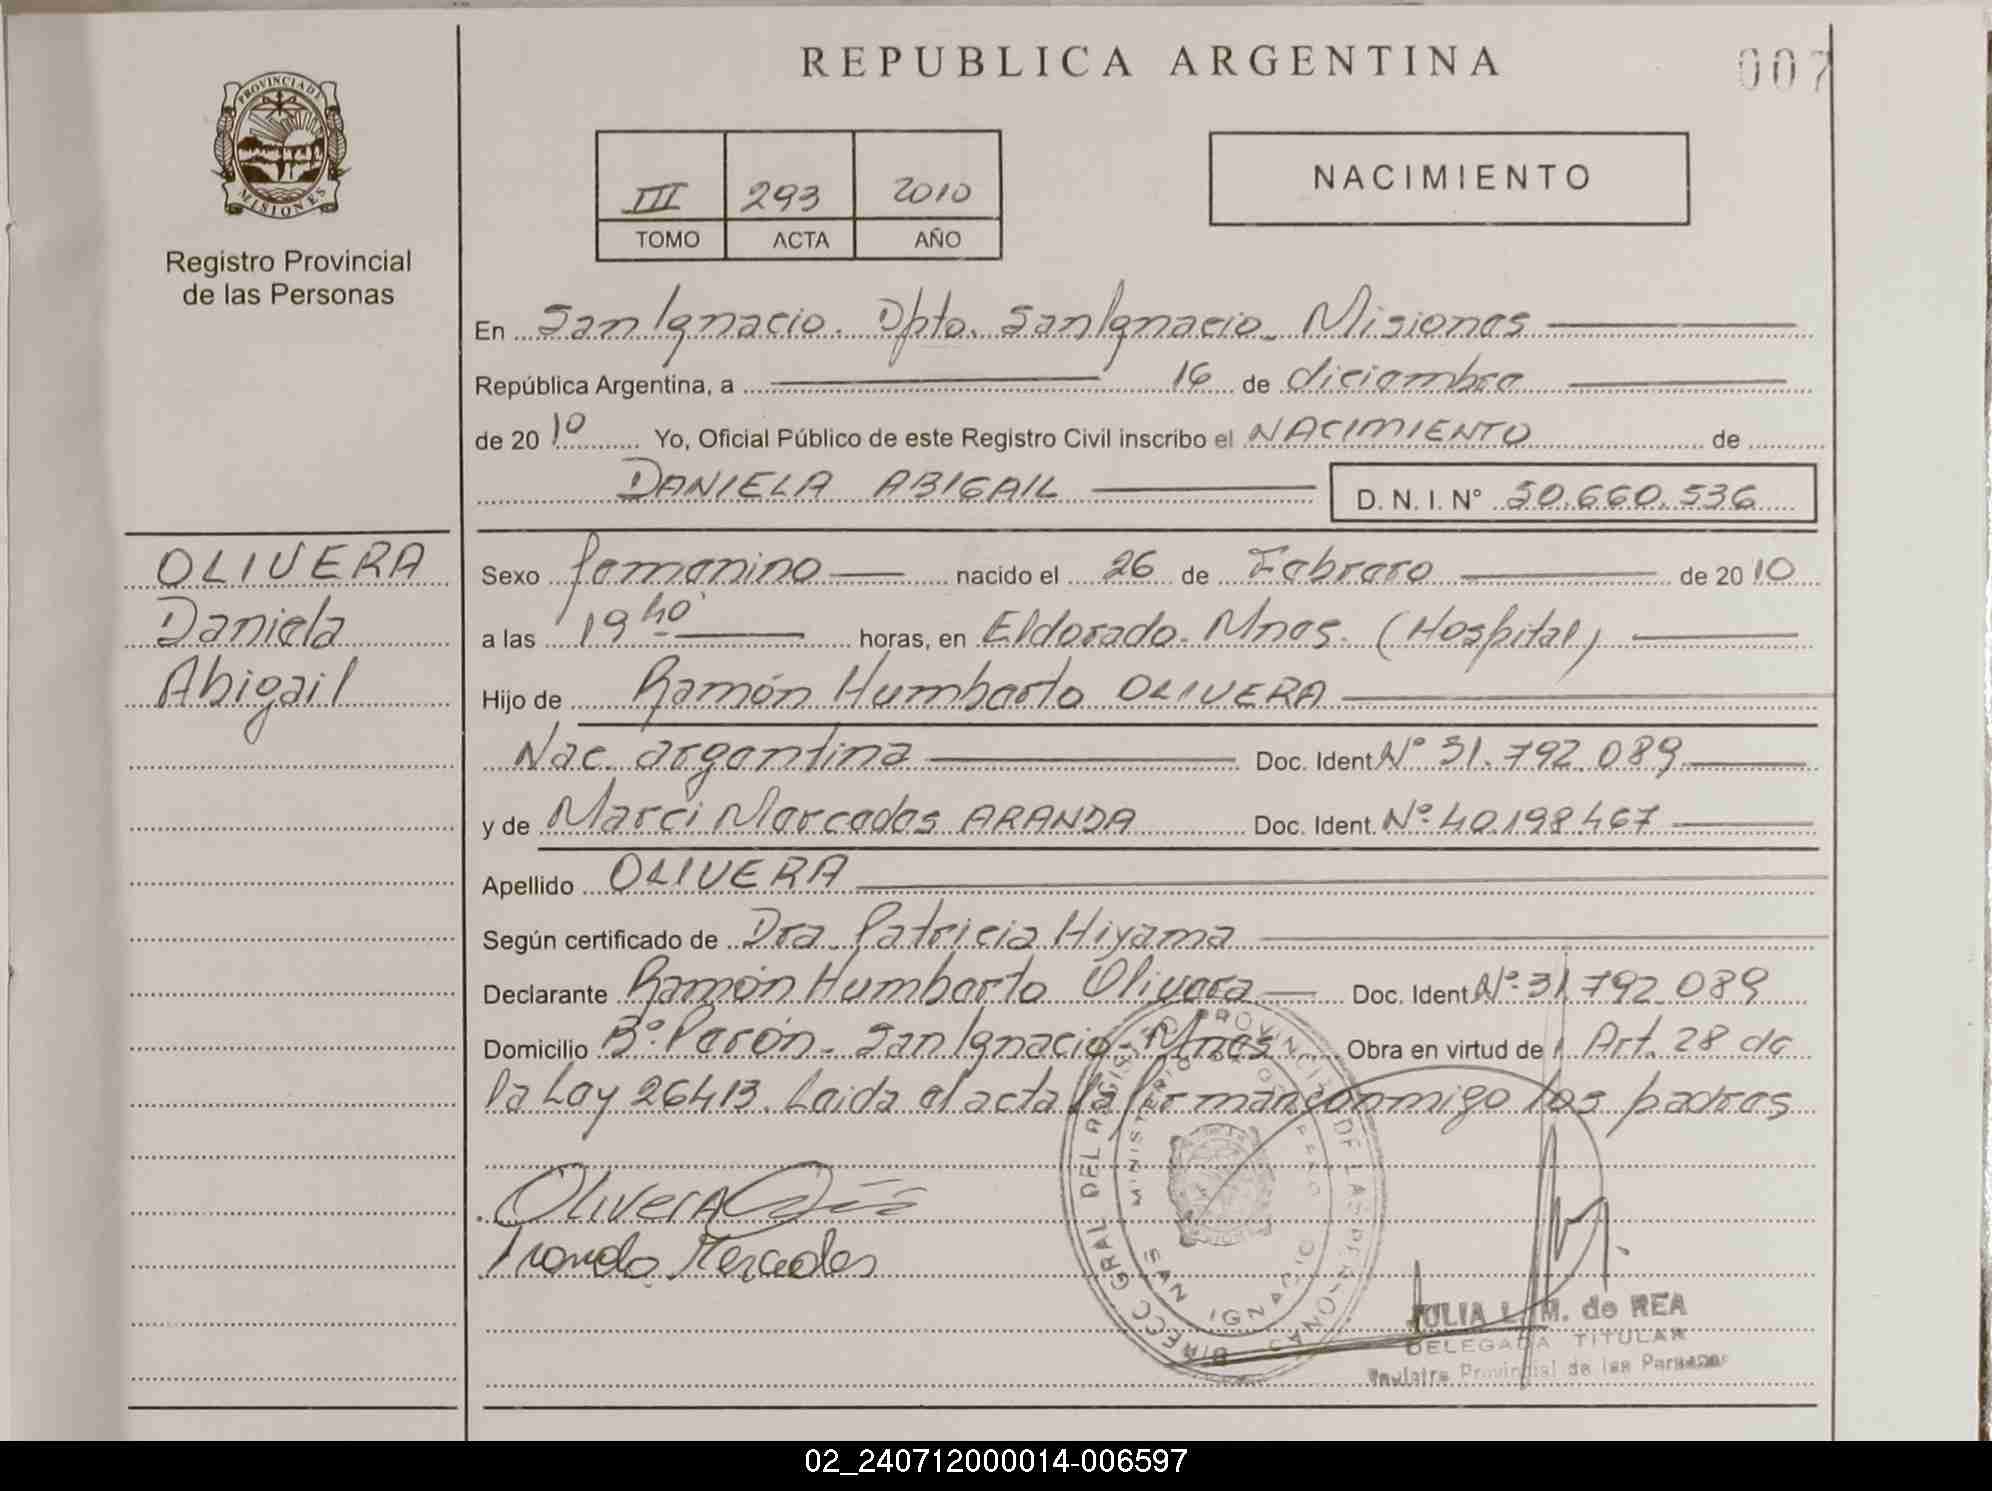 REPUBLICA ARGENTINA
007
PROVINCIA DE
MISIONES
Registro Provincial
de las Personas
III 293 2010
TOMO ACTA AÑO
NACIMIENTO
En San Ignacio. Dpto. San Ignacio_ Misiones
República Argentina, a 16 de diciembre
de 20 10 Yo, Oficial Público de este Registro Civil inscribo el NACIMIENTO de
DANIELA ABIGAIL D. N. I. N° 50.660.536
OLIVERA
Daniela
Abigail
Sexo femenino nacido el 26 de Febrero de 20 10
a las 19 40' horas, en Eldorado. Mnes. (Hospital)
Hijo de Ramón Humberto OLIVERA
Nac. argentina Doc. Ident N° 31.792.089
y de Marci Mercedes ARANDA Doc. Ident. N° 40.198.467
Apellido OLIVERA
Según certificado de Dra. Patricia Hiyama
Declarante Ramón Humberto Olivera Doc. Ident N° 31.792.089
Domicilio B° Perón. San Ignacio-Mnes Obra en virtud de Art. 28 de
la Ley 26413. Leida el acta la firman conmigo los padres
Olivera
Aranda Mercedes
DIRECC GRAL DEL REGISTRO PROVINCIAL DE LAS PERSONAS
MINISTERIO DE GOBIERNO
SAN IGNACIO
JULIA L. M. de REA
DELEGADA TITULAR
Registro Provincial de las Personas
02_240712000014-006597